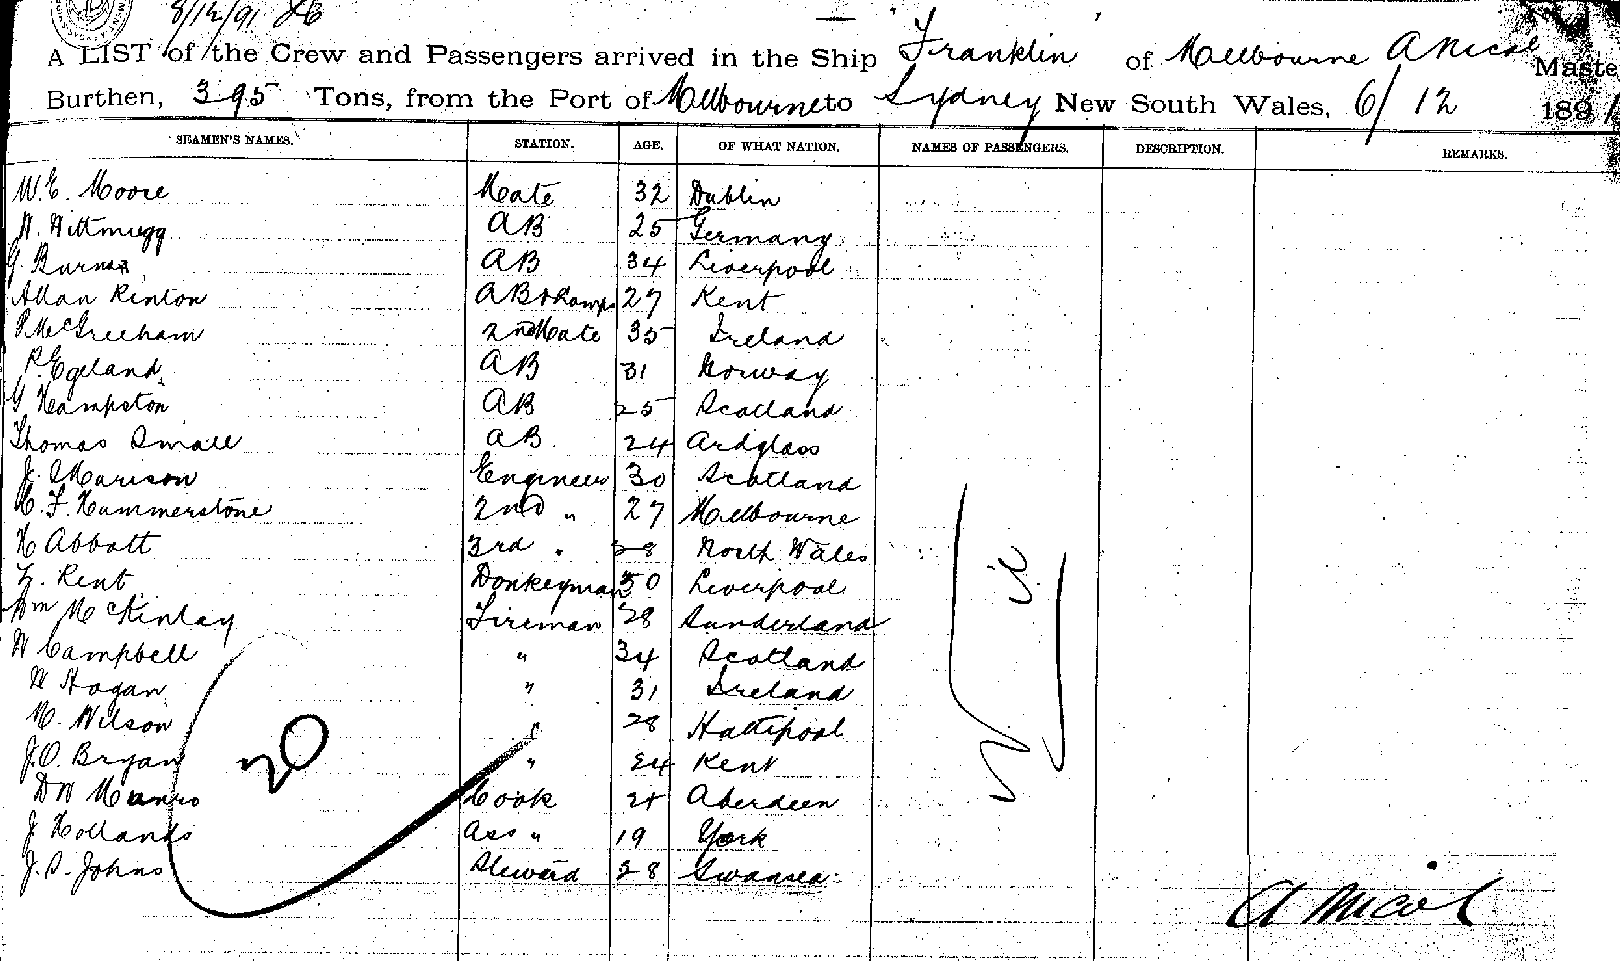 8/12/91
A LIST of the Crew and Passengers arrived in the Ship "Franklin" of Melbourne A Nicol Maste
Burthen, 395 Tons, from the Port of Melbourne to Sydney New South Wales, 6/12 1891
SEAMEN'S NAMES. STATION. AGE. OF WHAT NATION. NAMES OF PASSENGERS. DESCRIPTION. REMARKS.
W. E. Moore Mate 32 Dublin
AB 25 Germany
G. Burns AB 34 Liverpool
Allan Renton AB & Lamps 27 Kent
P. McGreeham 2nd Mate 35 Ireland
P. Egeland AB 31 Norway
G Hampston AB 25 Scotland
Thomas Small AB 24 Ardglass
J. Marison Engineer 30 Scotland
H. F. Hammerstone 2nd " 27 Melbourne
H Abbott 3rd " 28 North Wales
Kent Donkeyman 50 Liverpool
Wm McKinlay Fireman 28 Sunderland
W Campbell " 34 Scotland
W Hogan " 31 Ireland
M. Wilson " 28 Hattipool
J. O. Bryan " 24 Kent
D W Munro Cook Aberdeen
J Hollands Ass " 19 York
J. S. Johns Steward 28 Swansea
20
Nil
A Nicol